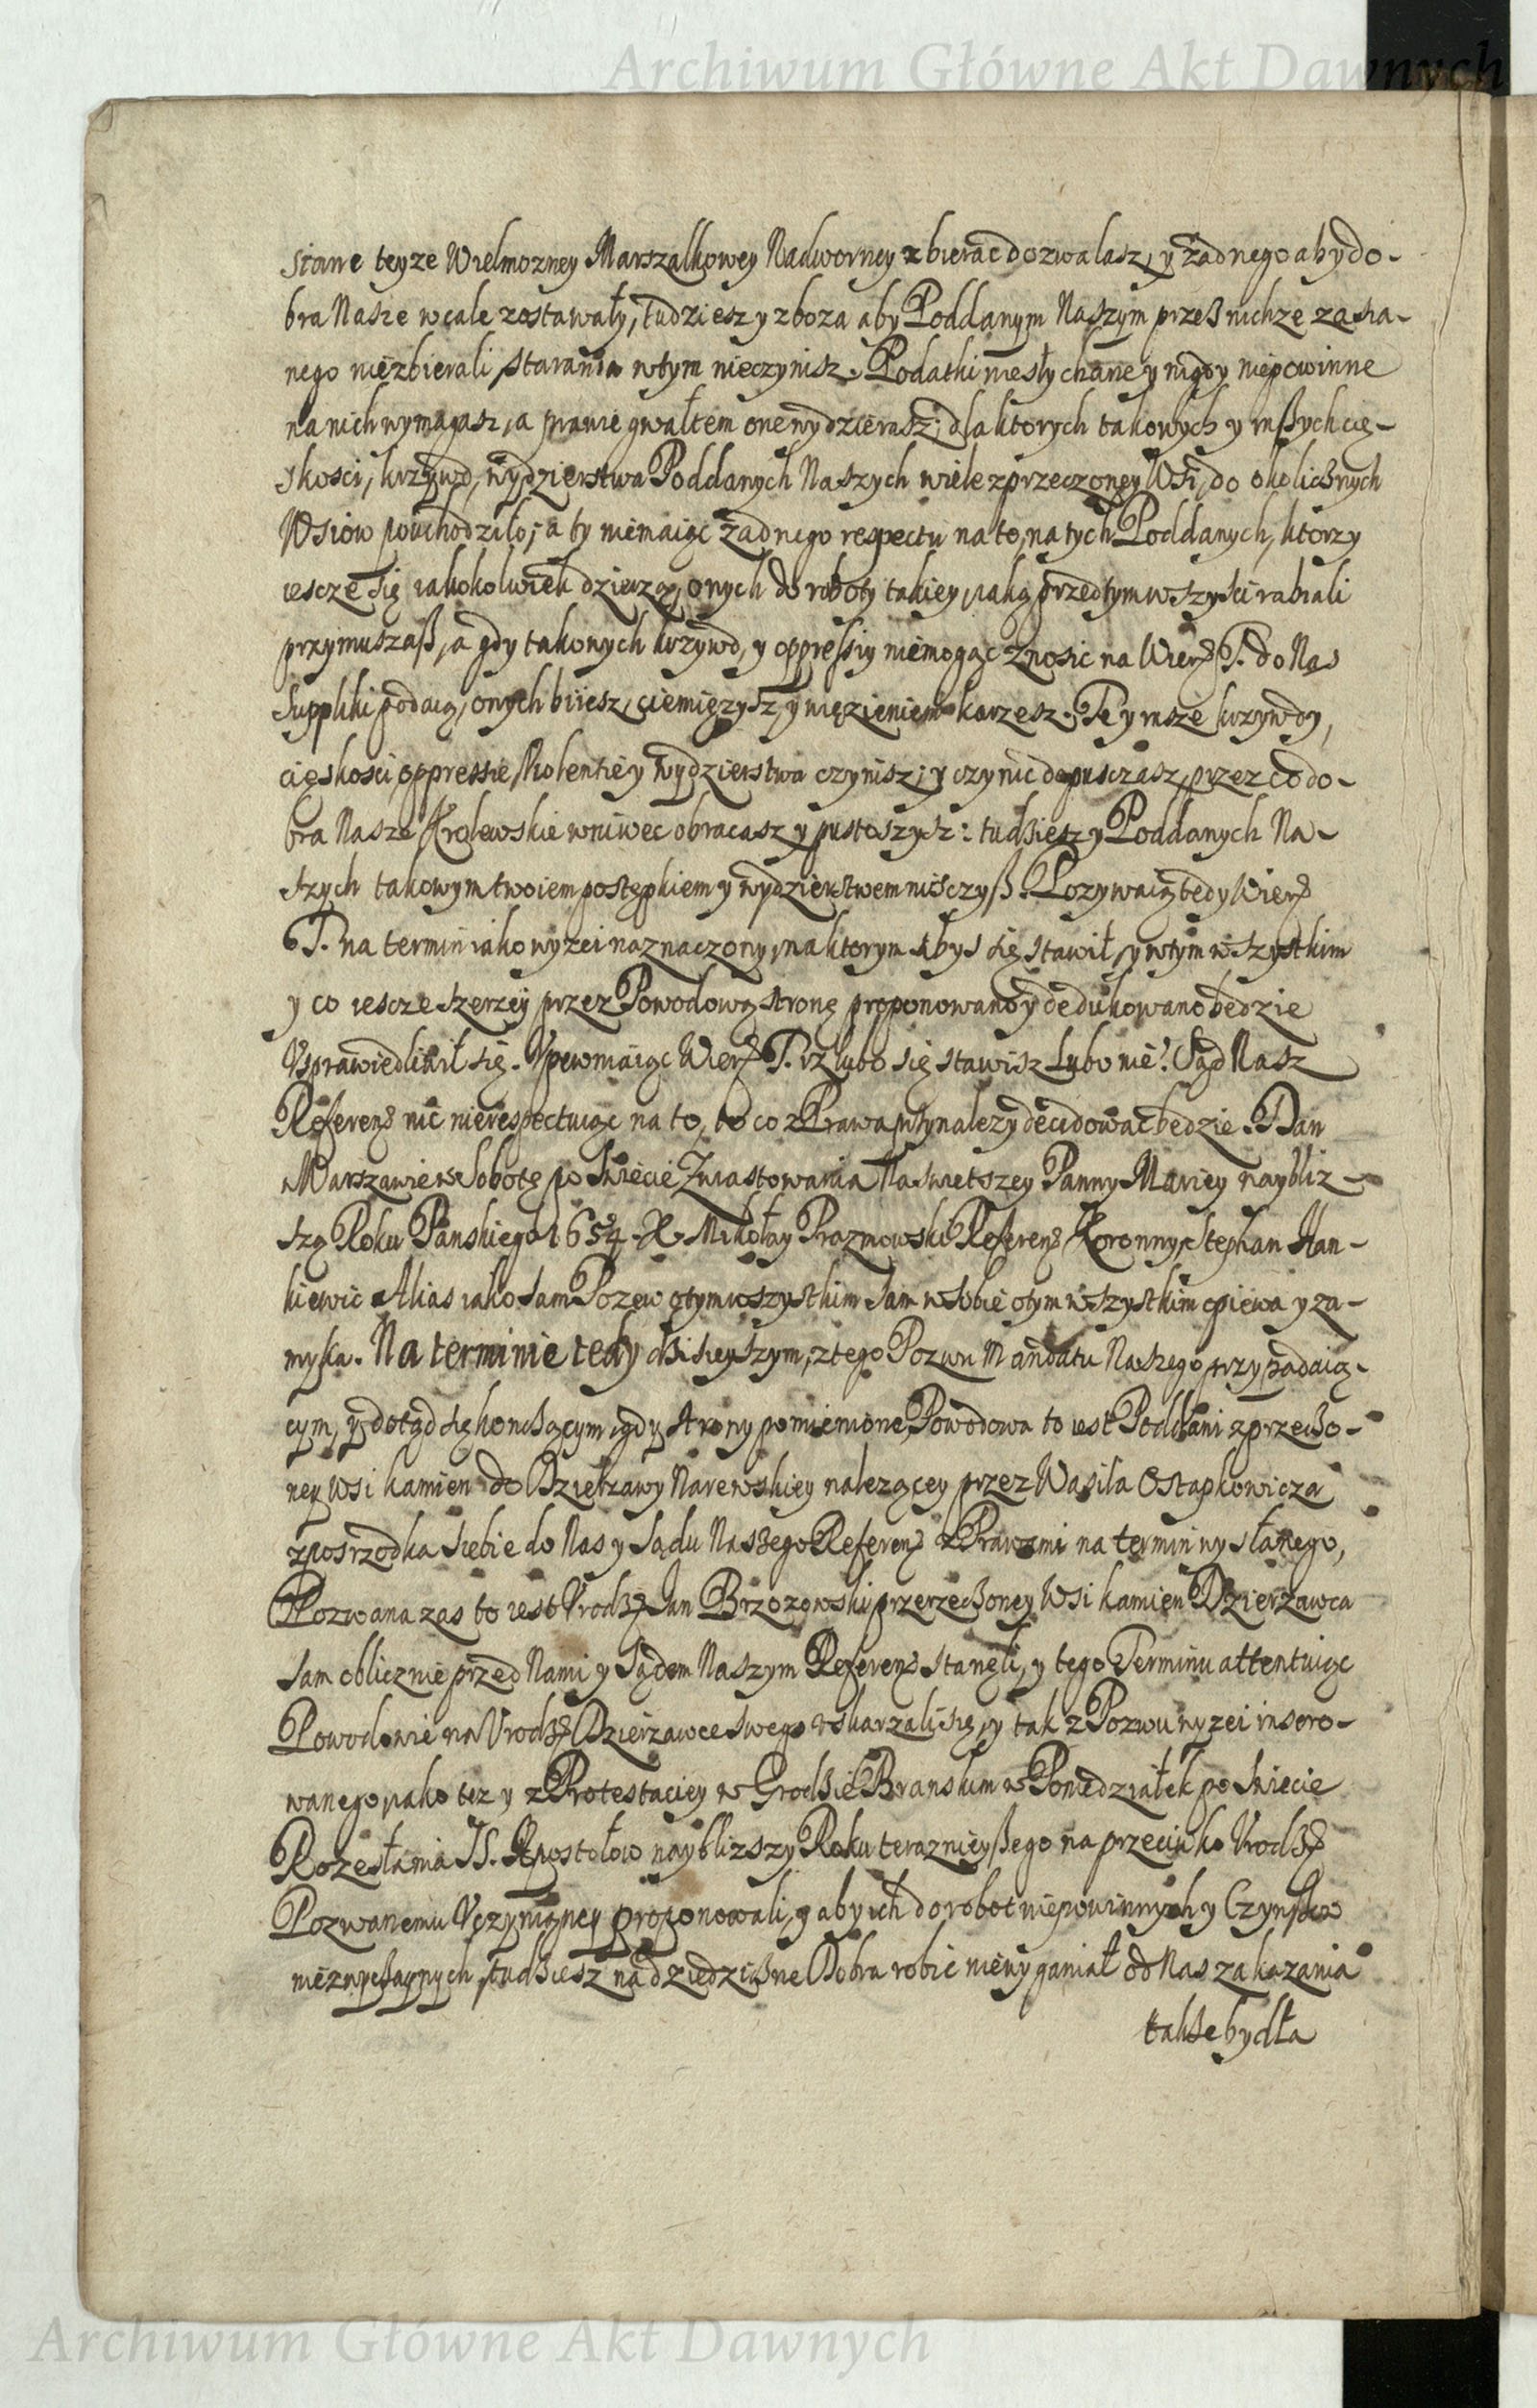 Archiwum Główne Akt Dawnych
stawe teyze Wielmozney Marszalkowey Nadworney zbierac dozwalasz, y żadnego aby do-
bra Nasze wcale zostawały, tudziesz y zboza aby Poddanym Naszym przeß nichze zasia-
nego niezbierali starania wtym nieczynisz. Podatki niesłychane y nigdy niepowinne
na nich wymagasz, a prawie gwałtem one wydzierasz; dla ktorych takowych y inßych cię-
skosci, krzywd, wydzierstwa Poddanych Naszych wiele zprzeczoney Wsi, do okolicznych
Wsiow pouchodziło; a ty niemaiąc żadnego respectu na to, na tych Poddanych, ktorzy
iescze się iakokolwiek dzierzą, onych do roboty takiey, iaką przedtym wszysci rabiali
przymuszaß, a gdy takowych krzywd, y oppressiy niemogąc znosic na Wierz T. do Nas
Suppliki podaią, onych biiesz, ciemięzysz, y więzieniem karzesz. Te y insze krzywdy,
cięskosci, oppressie, Violentie y wydzierstwa czynisz; y czynic dopusczasz, przez co do-
bra Nasze Krolewskie wniwec obracasz y pustoszysz: tudziesz y Poddanych Na-
szych takowym twoiem postępkiem y wydzierstwem nisczyß. Pozywaią tedy Wierz
T. na termin iako wyzei naznaczony, na ktorym abys się stawił, y wtym wszystkim
y co iescze szerzey przez Powodową stronę proponowano y dedukowano będzie
Vsprawiedliwił się. Vpewniaiąc Wierz T. iz lubo się stawisz Lubo nie: Sąd Nasz
Referenz nic nierespectuiąc na to, to co z Prawa przynalezy decidowac będzie. Dan
w Warszawie w Sobotę po Swięcie Zwiastowania Naswietszey Panny Mariey naybliz-
szą Roku Panskiego 1654. X. Mikołay Prazmowski Referenz Koronny, Stephan Han-
kiewic Alias iako sam Pozew o tym wszystkim sam w sobie o tym wszystkim opiewa y za-
myka. Na terminie tedy dzisieyszym, z tego Pozwu Mandatu Naszego przypadaią-
cym, y dotąd się konczącym, gdy strony pomienione, Powodowa to iest Poddani zprzeczo-
ney Wsi Kamien do Dzierzawy Narewskiey nalezącey przez Wasila Ostapkowicza
zposrzodka siebie do Nas y Sądu Naszego Referenz z Prawami na termin wysłanego,
Pozwana zas to iest Vrodz Jan Brzozowski przerzeczoney Wsi Kamien Dzierzawca
sam oblicznie przed Nami y Sądem Naszym Referenz stanęli, y tego Terminu attentuiąc
Powodowie na Vrodz Dzierzawce swego vskarzali się, y tak z Pozwu wyzei insero-
wanego, iako tez y z Protestaciey w Grodzie Branskim w Poniedziałek po Swiecie
Rozesłania SS. Apostołow nayblizszy Roku teraznieyßego na przeciwko Vrodz
Pozwanemu Vczynioney proponowali, gaby ich do robot niepowinnych y Czynßow
niezwyczaynych, tudziesz na dziedziczne Dobra robic niewyganiał od Nas zakazania
takze bydła
Archiwum Główne Akt Dawnych